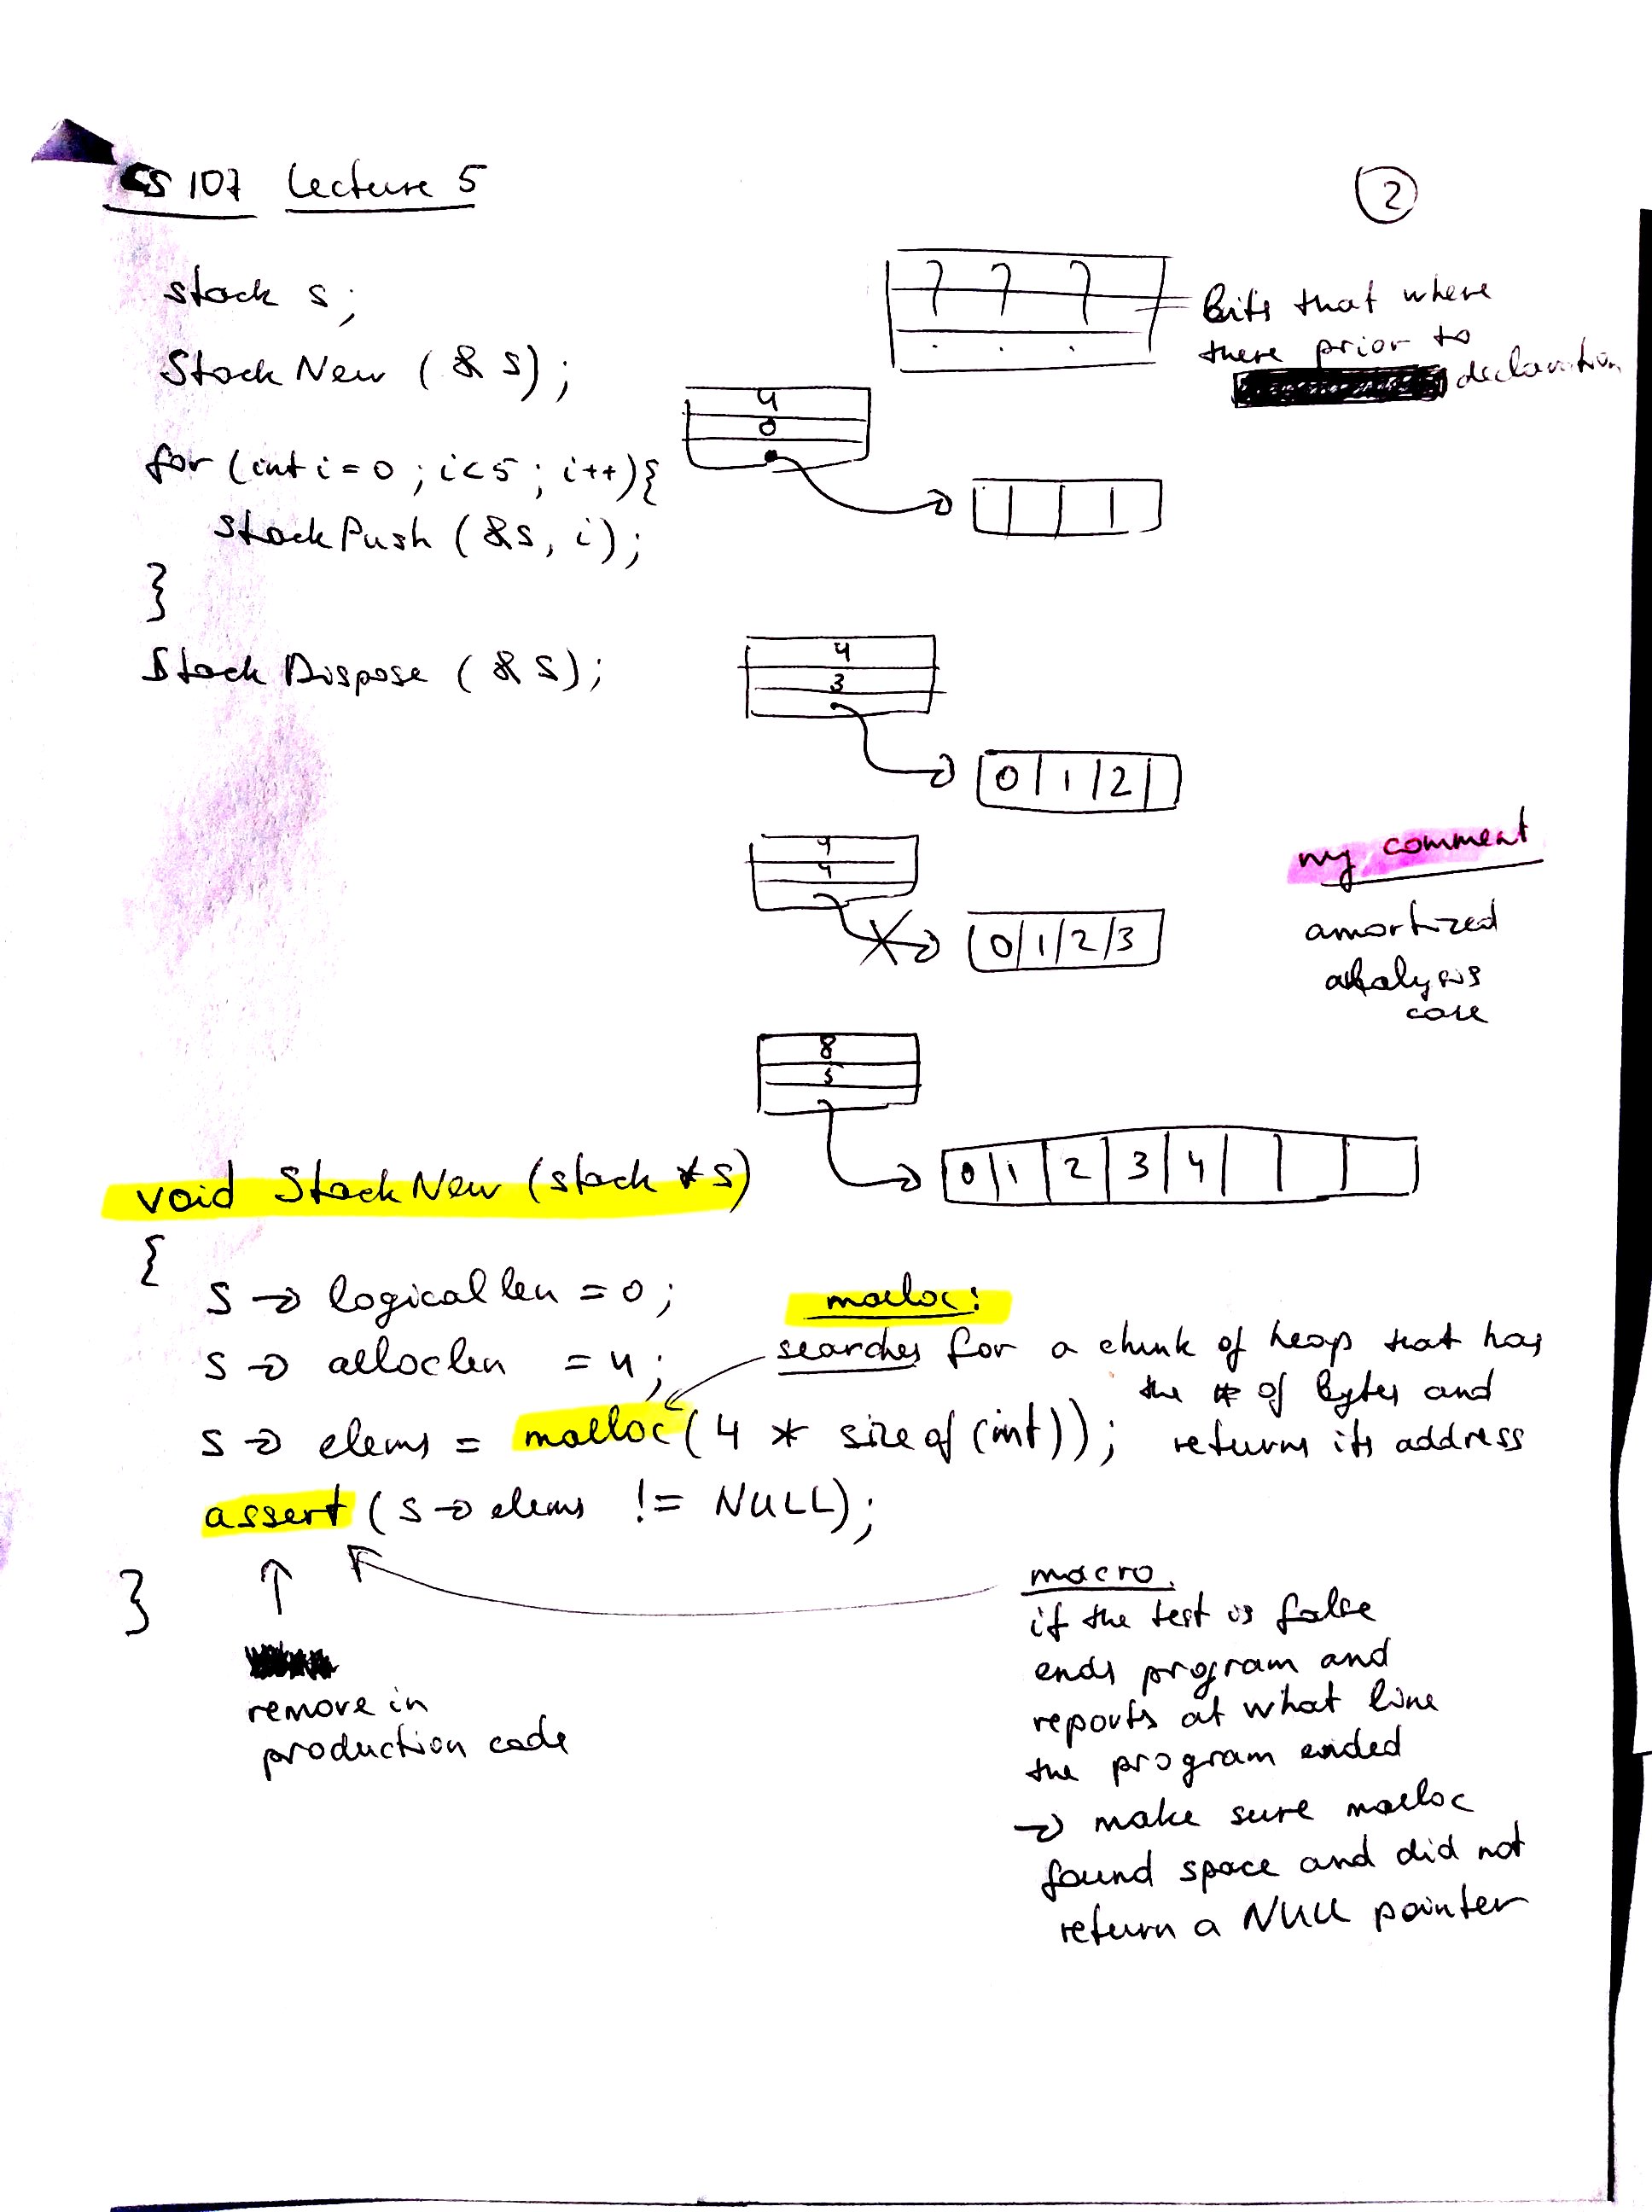 CS 107 Lecture 5
2
stack s;
StackNew (&s);
for (int i=0; i<5; i++){
StackPush (&s, i);
}
StackDispose (&s);
? ? ?
. . .
Bits that where
there prior to
declaration
4
0
4
3
0 1 2
4
4
0 1 2 3
my comment
amortized
analysis
case
8
5
0 1 2 3 4
void StackNew (stack *s)
{
s → logicallen = 0;
s → alloclen = 4;
s → elems = malloc (4 * sizeof (int));
assert (s → elems != NULL);
}
malloc:
searches for a chunk of heap that has
the # of bytes and
returns its address
↑
remove in
production code
macro.
if the test is false
ends program and
reports at what line
the program ended
→ make sure malloc
found space and did not
return a NULL pointer